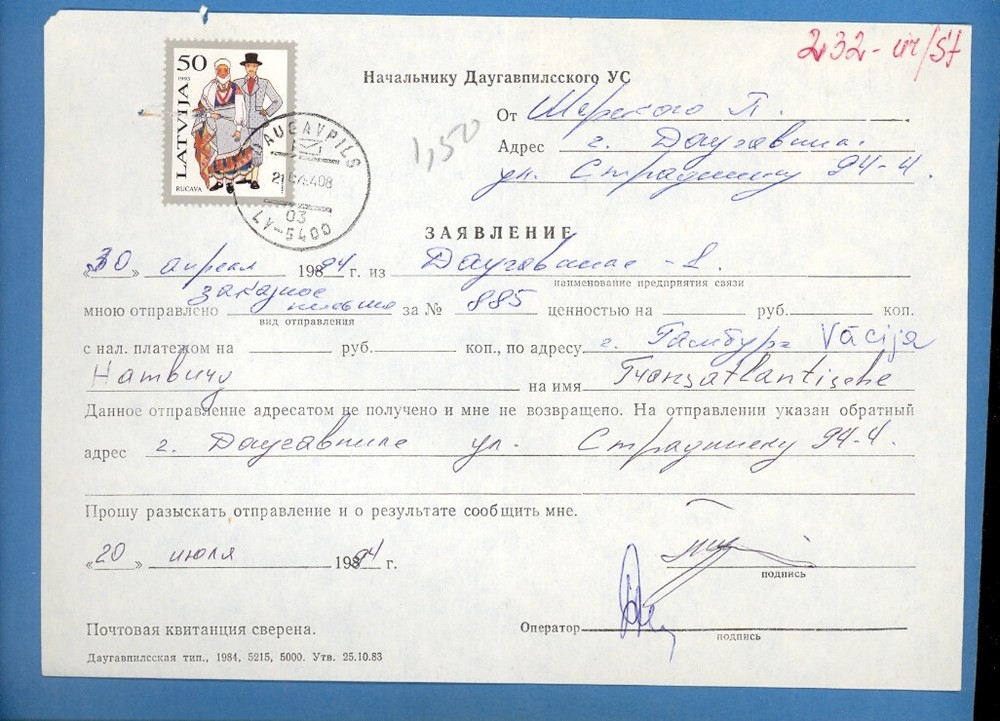 232-
50
1993
LATVIJA
RUCAVA
DAUGAVPILS
03
LV-5400
1,50
Начальнику Даугавпилсского УС
От Шерского П.
Адрес г. Даугавпилс
ул. Страдиню 94-4.
ЗАЯВЛЕНИЕ
«30» апреля 1994 г. из Даугавпилс -1.
наименование предприятия связи
заказное
мною отправлено письмо за № 885 ценностью на руб. коп.
вид отправления
с нал. платежом на руб. коп., по адресу г. Гамбург Vācija
на имя
Данное отправление адресатом не получено и мне не возвращено. На отправлении указан обратный
адрес г. Даугавпилс ул. Страдиню 94-4.
Прошу разыскать отправление и о результате сообщить мне.
«20» июля 1994 г.
подпись
Почтовая квитанция сверена. Оператор
подпись
Даугавпилсская тип., 1984, 5215, 5000. Утв. 25.10.83